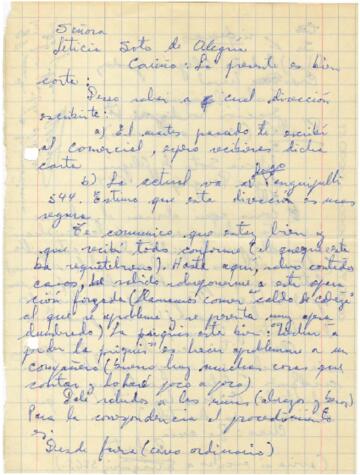 Señora
Leticia Soto de Alegría
Cariño: La presente es bien
corta:
Deseo saber a cual dirección
escribirte:
a) El martes pasado te escribí
al comercial, espero recibieses dicha
carta
b) La actual va a Lago Panguipulli
544. Estimo que esta dirección es mas
segura.
Te comunico que estoy bien y
que recibí todo conforme (el queque esta
ba requetebueno). Hasta aquí, salvo contados
casos, he salido
ración forzada (llamamos comer caldo de cabeza
al que se aproblema y se pasita muy apesa
dumbrado) La psiquis está bien.
a un
compañero (tienen muchas cosas que
contar y lo haré poco a poco)
Dele saludos a los niños (abrazos y besos)
Para la correspondencia el procedimiento
es:
Desde fuera (correo ordinario)